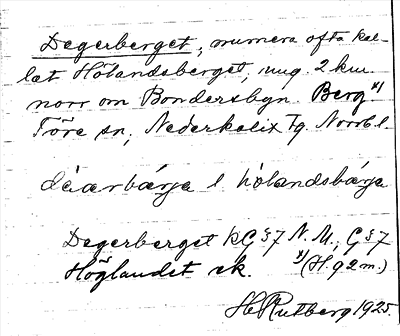 Degerberget, numera ofta kal-
lat Hölandsberget, ung. 2 km.
norr om Bondersbyn. Berg x)
Töre sn, Nederkalix Tg. Norrb. l.
dèarbárja l hölandsbárja
Degerberget kG§7 N.M.; G§7
Höglandet ek. x) (H. 92 m.)
H Rutberg 1925.